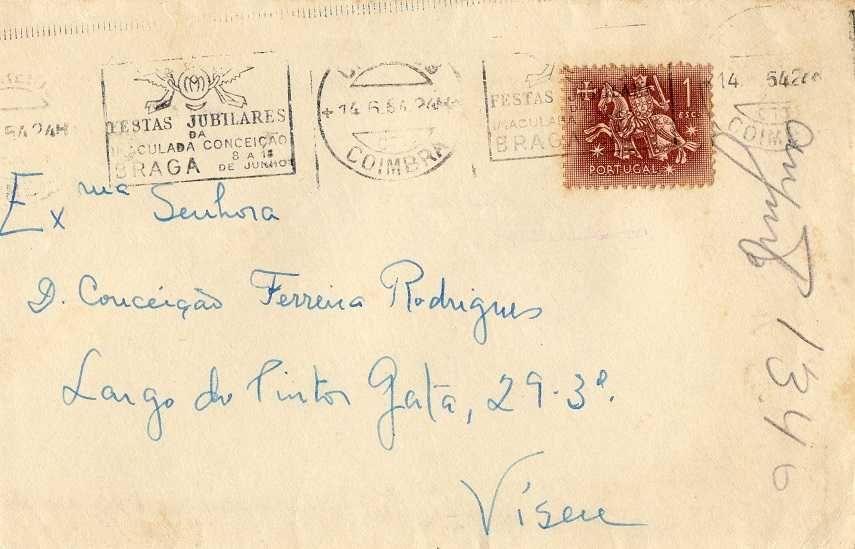 FESTAS JUBILARES
DA
IMACULADA CONCEIÇÃO
BRAGA 8 A 15
DE JUNHO
+14.6.54.24H
COIMBRA
54.24H
FESTAS
IMACULADA
BRAGA
14 5424H
COIMB
1
ESC.
PORTUGAL
Exma Senhora
D. Conceição Ferreira Rodrigues
Largo do Pintor Gata, 29-3º.
Viseu
1346